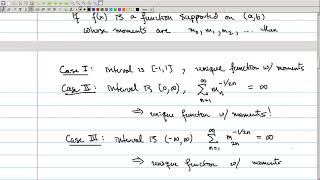 If f(x) is a function supported on (a,b)
whose moments are m₀, m₁, m₂, ... then
Case I: Interval is [-1,1], unique function w/ moments
Case II: Interval is [0,∞), ∞ Σ n=1 mₙ^(-1/2n) = ∞
⇒ unique function w/ moments!
Case III: interval is (-∞,∞) ∞ Σ n=1 m₂ₙ^(-1/2n) = ∞
⇒ unique function w/ moments